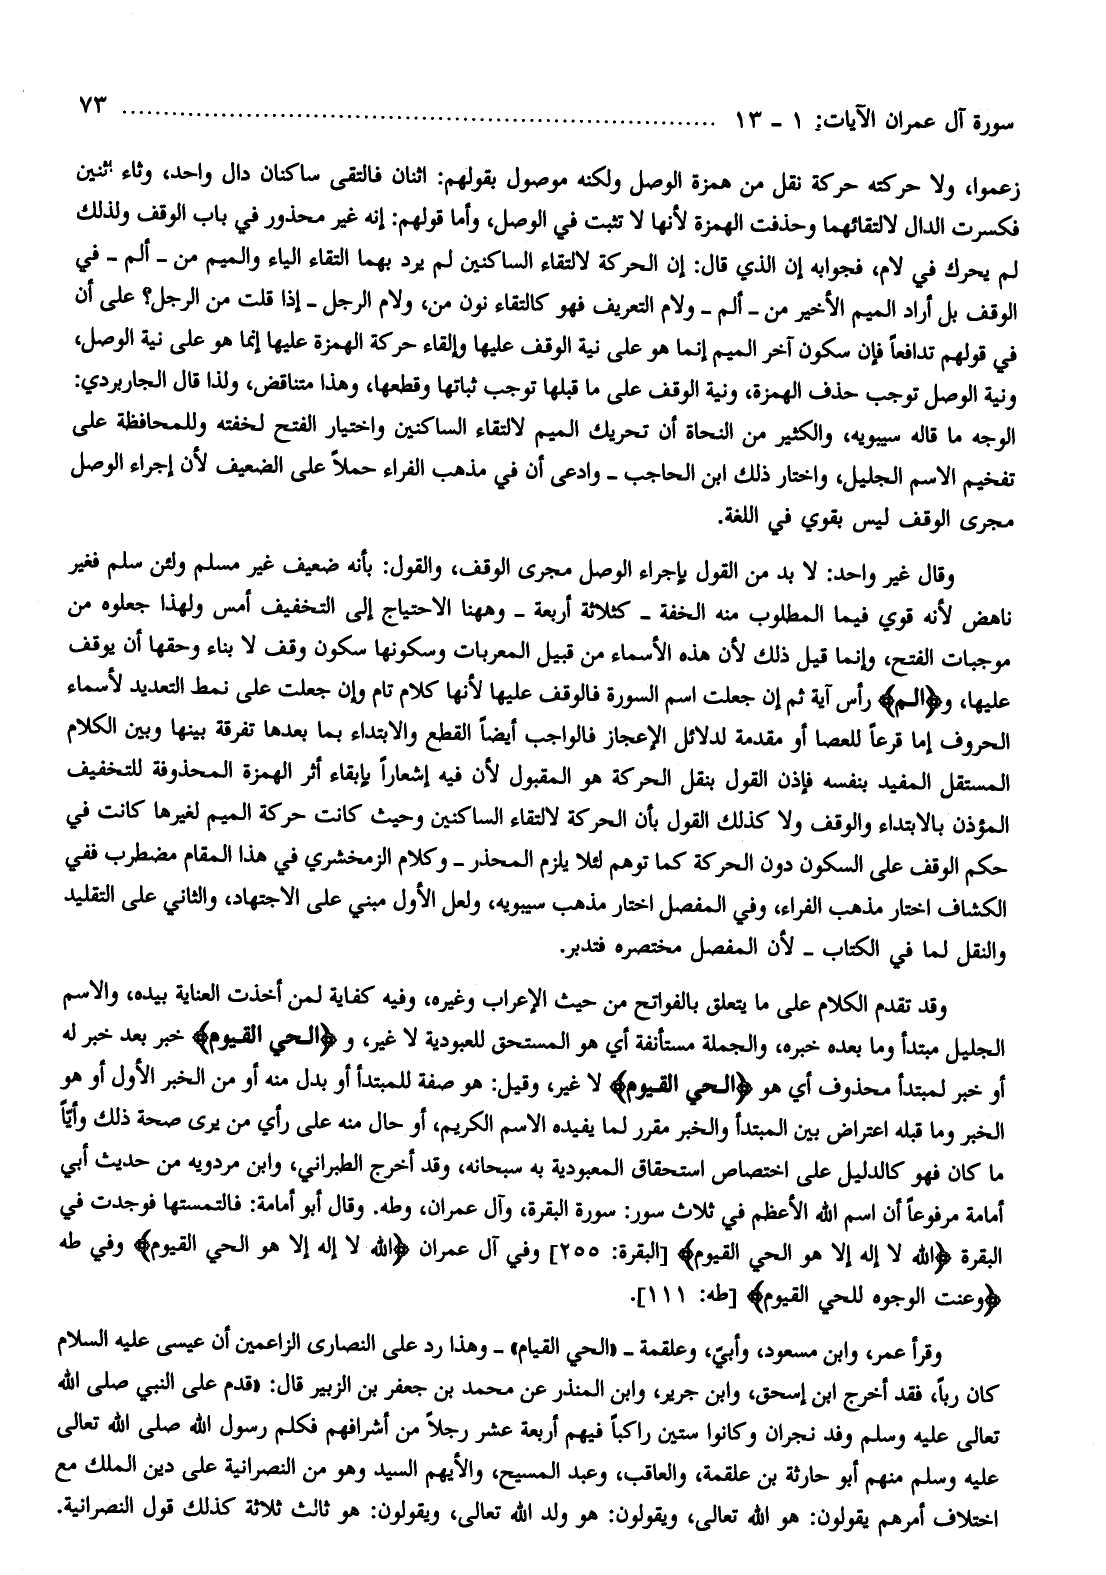 سورة آل عمران الآيات: ١ ـ ١٣ ........................................................................ ٧٣
زعموا، ولا حركته حركة نقل من همزة الوصل ولكنه موصول بقولهم: اثنان فالتقى ساكنان دال واحد، وثاء اثنين
فكسرت الدال لالتقائهما وحذفت الهمزة لأنها لا تثبت في الوصل، وأما قولهم: إنه غير محذور في باب الوقف ولذلك
لم يحرك في لام، فجوابه إن الذي قال: إن الحركة لالتقاء الساكنين لم يرد بهما التقاء الياء والميم من ـ ألم ـ في
الوقف بل أراد الميم الأخير من ـ ألم ـ ولام التعريف فهو كالتقاء نون من، ولام الرجل ـ إذا قلت من الرجل؟ على أن
في قولهم تدافعاً فإن سكون آخر الميم إنما هو على نية الوقف عليها وإلقاء حركة الهمزة عليها إنما هو على نية الوصل،
ونية الوصل توجب حذف الهمزة، ونية الوقف على ما قبلها توجب ثباتها وقطعها، وهذا متناقض، ولذا قال الجاربردي:
الوجه ما قاله سيبويه، والكثير من النحاة أن تحريك الميم لالتقاء الساكنين واختيار الفتح لخفته وللمحافظة على
تفخيم الاسم الجليل، واختار ذلك ابن الحاجب ـ وادعى أن في مذهب الفراء حملاً على الضعيف لأن إجراء الوصل
مجرى الوقف ليس بقوي في اللغة.
وقال غير واحد: لا بد من القول بإجراء الوصل مجرى الوقف، والقول: بأنه ضعيف غير مسلم ولئن سلم فغير
ناهض لأنه قوي فيما المطلوب منه الخفة ـ كثلاثة أربعة ـ وههنا الاحتياج إلى التخفيف أمس ولهذا جعلوه من
موجبات الفتح، وإنما قيل ذلك لأن هذه الأسماء من قبيل المعربات وسكونها سكون وقف لا بناء وحقها أن يوقف
عليها، و﴿الم﴾ رأس آية ثم إن جعلت اسم السورة فالوقف عليها لأنها كلام تام وإن جعلت على نمط التعديد لأسماء
الحروف إما قرعاً للعصا أو مقدمة لدلائل الإعجاز فالواجب أيضاً القطع والابتداء بما بعدها تفرقة بينها وبين الكلام
المستقل المفيد بنفسه فإذن القول بنقل الحركة هو المقبول لأن فيه إشعاراً بإبقاء أثر الهمزة المحذوفة للتخفيف
المؤذن بالابتداء والوقف ولا كذلك القول بأن الحركة لالتقاء الساكنين وحيث كانت حركة الميم لغيرها كانت في
حكم الوقف على السكون دون الحركة كما توهم لئلا يلزم المحذر ـ وكلام الزمخشري في هذا المقام مضطرب ففي
الكشاف اختار مذهب الفراء، وفي المفصل اختار مذهب سيبويه، ولعل الأول مبني على الاجتهاد، والثاني على التقليد
والنقل لما في الكتاب ـ لأن المفصل مختصره فتدبر.
وقد تقدم الكلام على ما يتعلق بالفواتح من حيث الإعراب وغيره، وفيه كفاية لمن أخذت العناية بيده، والاسم
الجليل مبتدأ وما بعده خبره، والجملة مستأنفة أي هو المستحق للعبودية لا غير، و ﴿الحي القيوم﴾ خبر بعد خبر له
أو خبر لمبتدأ محذوف أي هو ﴿الحي القيوم﴾ لا غير، وقيل: هو صفة للمبتدأ أو بدل منه أو من الخبر الأول أو هو
الخبر وما قبله اعتراض بين المبتدأ والخبر مقرر لما يفيده الاسم الكريم، أو حال منه على رأي من يرى صحة ذلك وأيّاً
ما كان فهو كالدليل على اختصاص استحقاق المعبودية به سبحانه، وقد أخرج الطبراني، وابن مردويه من حديث أبي
أمامة مرفوعاً أن اسم الله الأعظم في ثلاث سور: سورة البقرة، وآل عمران، وطه. وقال أبو أمامة: فالتمستها فوجدت في
البقرة ﴿الله لا إله إلا هو الحي القيوم﴾ [البقرة: ٢٥٥] وفي آل عمران ﴿الله لا إله إلا هو الحي القيوم﴾ وفي طه
﴿وعنت الوجوه للحي القيوم﴾ [طه: ١١١].
وقرأ عمر، وابن مسعود، وأبيّ، وعلقمة ـ «الحي القيام» ـ وهذا رد على النصارى الزاعمين أن عيسى عليه السلام
كان رباً، فقد أخرج ابن إسحق، وابن جرير، وابن المنذر عن محمد بن جعفر بن الزبير قال: «قدم على النبي صلى الله
تعالى عليه وسلم وفد نجران وكانوا ستين راكباً فيهم أربعة عشر رجلاً من أشرافهم فكلم رسول الله صلى الله تعالى
عليه وسلم منهم أبو حارثة بن علقمة، والعاقب، وعبد المسيح، والأيهم السيد وهو من النصرانية على دين الملك مع
اختلاف أمرهم يقولون: هو الله تعالى، ويقولون: هو ولد الله تعالى، ويقولون: هو ثالث ثلاثة كذلك قول النصرانية.